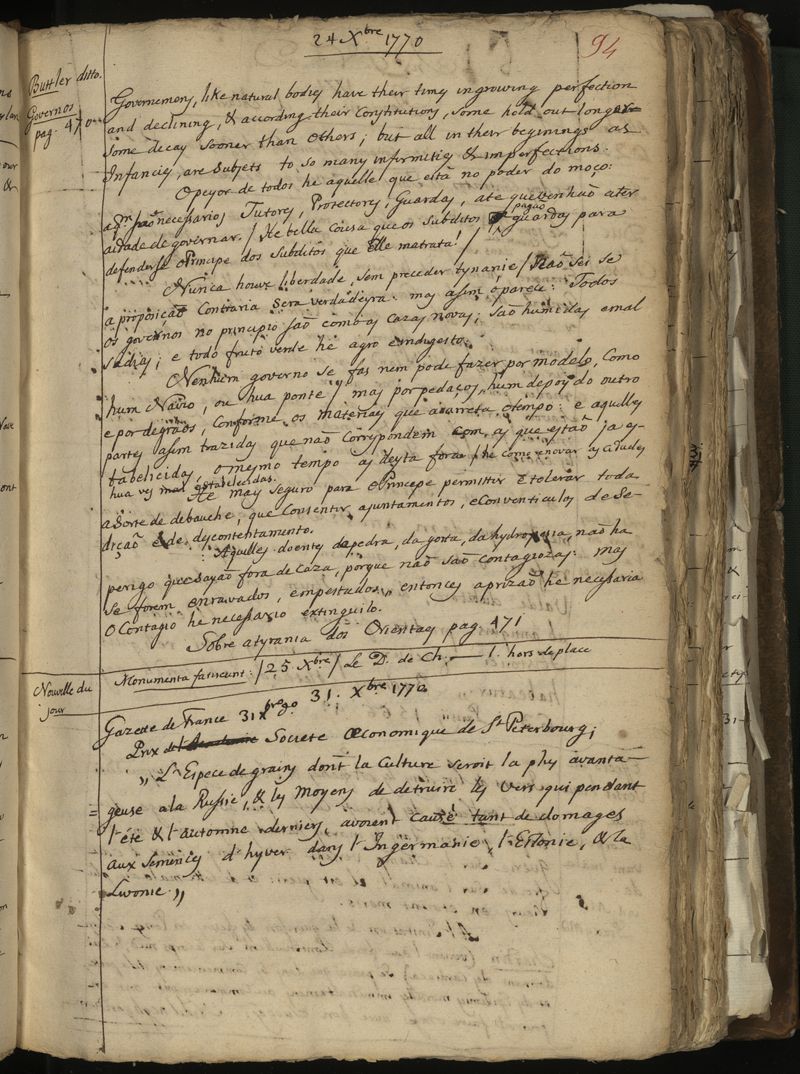 24 Xbre 1770
94
Buttler ditto.
Governos
pag. 470
Governemens, like natural bodies have their times ingrowing perfection
and declining, & according their Constitutions, some hold out longer
some decay sooner than others; but all in their beginings as
Infancies, are Subjets to so many infirmities & imperfections.
Opeyor de todos he aquelle que está no poder do moço:
aqm saõ necessarios Tutores, Protectores, Guardas, ate que venhaõ ater
aidade de governar. / He bella cousa que os Subditos pagaõ guardas para
defenderse oPrincipe dos Subditos que elle matrata! /
Nunca houve liberdade, sem preceder tyranie / Naõ sei se
a proposiçaõ Contraria Sera verdadeyra: mas assim oparece: Todos
os governos no principio saõ como as cazas novas; saõ humidas emal
sadias; e todo fruto verde he agro eindugesto.
Nenhum governo se fas nem pode fazer por modelo, Como
hum Navio, ou hua ponte / mas por pedaços, hum depois do outro
e por degraõs, Conforme os materias que acarreta otempo: e aquelles
partes assim trazidas que naõ Correspondem com as que estaõ ja es-
tabelicidas, omesmo tempo as deyta fora / he como renovar as Cidades
hua ves mal estabelecidas.
He mas seguro para oPrincepe permittir Etolerar toda
aSorte de debauche, que Consentir ajuntamentos, eConventiculos de Se-
diçaõ & de descontentamento.
Aquelles doentes dapedra, da gota, da hydropesia, naõ ha
perigo que sayaõ fora de caza, porque naõ saõ Contagiozas: mas
se forem enravados, empestados, entonces aprizaõ he necessaria
O Contagio he necessario extinguilo.
Sobre atyrania dos Orientaes pag. 471
Monumenta fatiscunt: / 25 Xbre / Le D. de Ch. — l. hors de place
Nouvelle du
jour
31. Xbre 1770
Gazette de France 31 Xbre
Prix de Societe Œconomique de St Peterbourg;
„ L'Espece de grains dont la Culture seroit la plus avanta-
geuse a la Russie, & les Moyens de detruire les Vers qui pendant
l'été & l'automne derniers, avoient causé tant de domages
aux Semences d'hyver dans l'Ingermanie, l'Estonie, & la
Livonie „